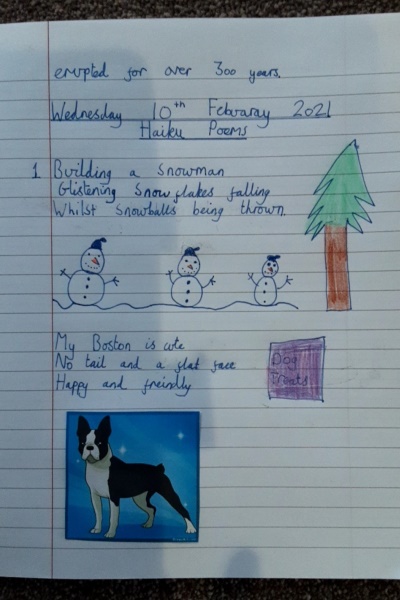 erupted for over 300 years.
Wednesday 10th Febuaray 2021
Haiku Poems
1. Building a Snowman
Glistening Snow flakes falling
Whilst Snowballs being thrown.
My Boston is cute
No tail and a flat face
Happy and freindly
Dog
Treats